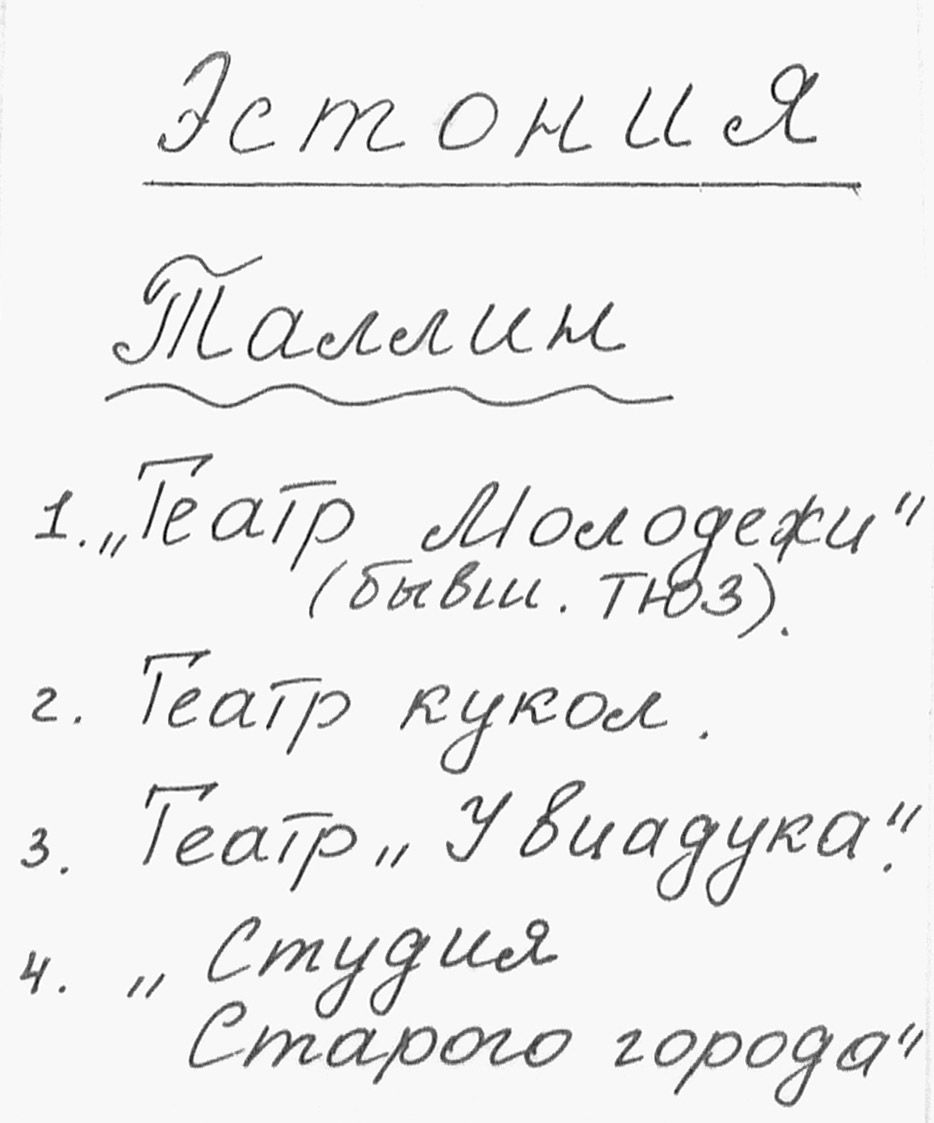 Эстония
Таллин
1. „Театр Молодежи"
(бывш. ТЮЗ).
2. Театр кукол.
3. Театр „У виадука".
4. „Студия
Старого города"